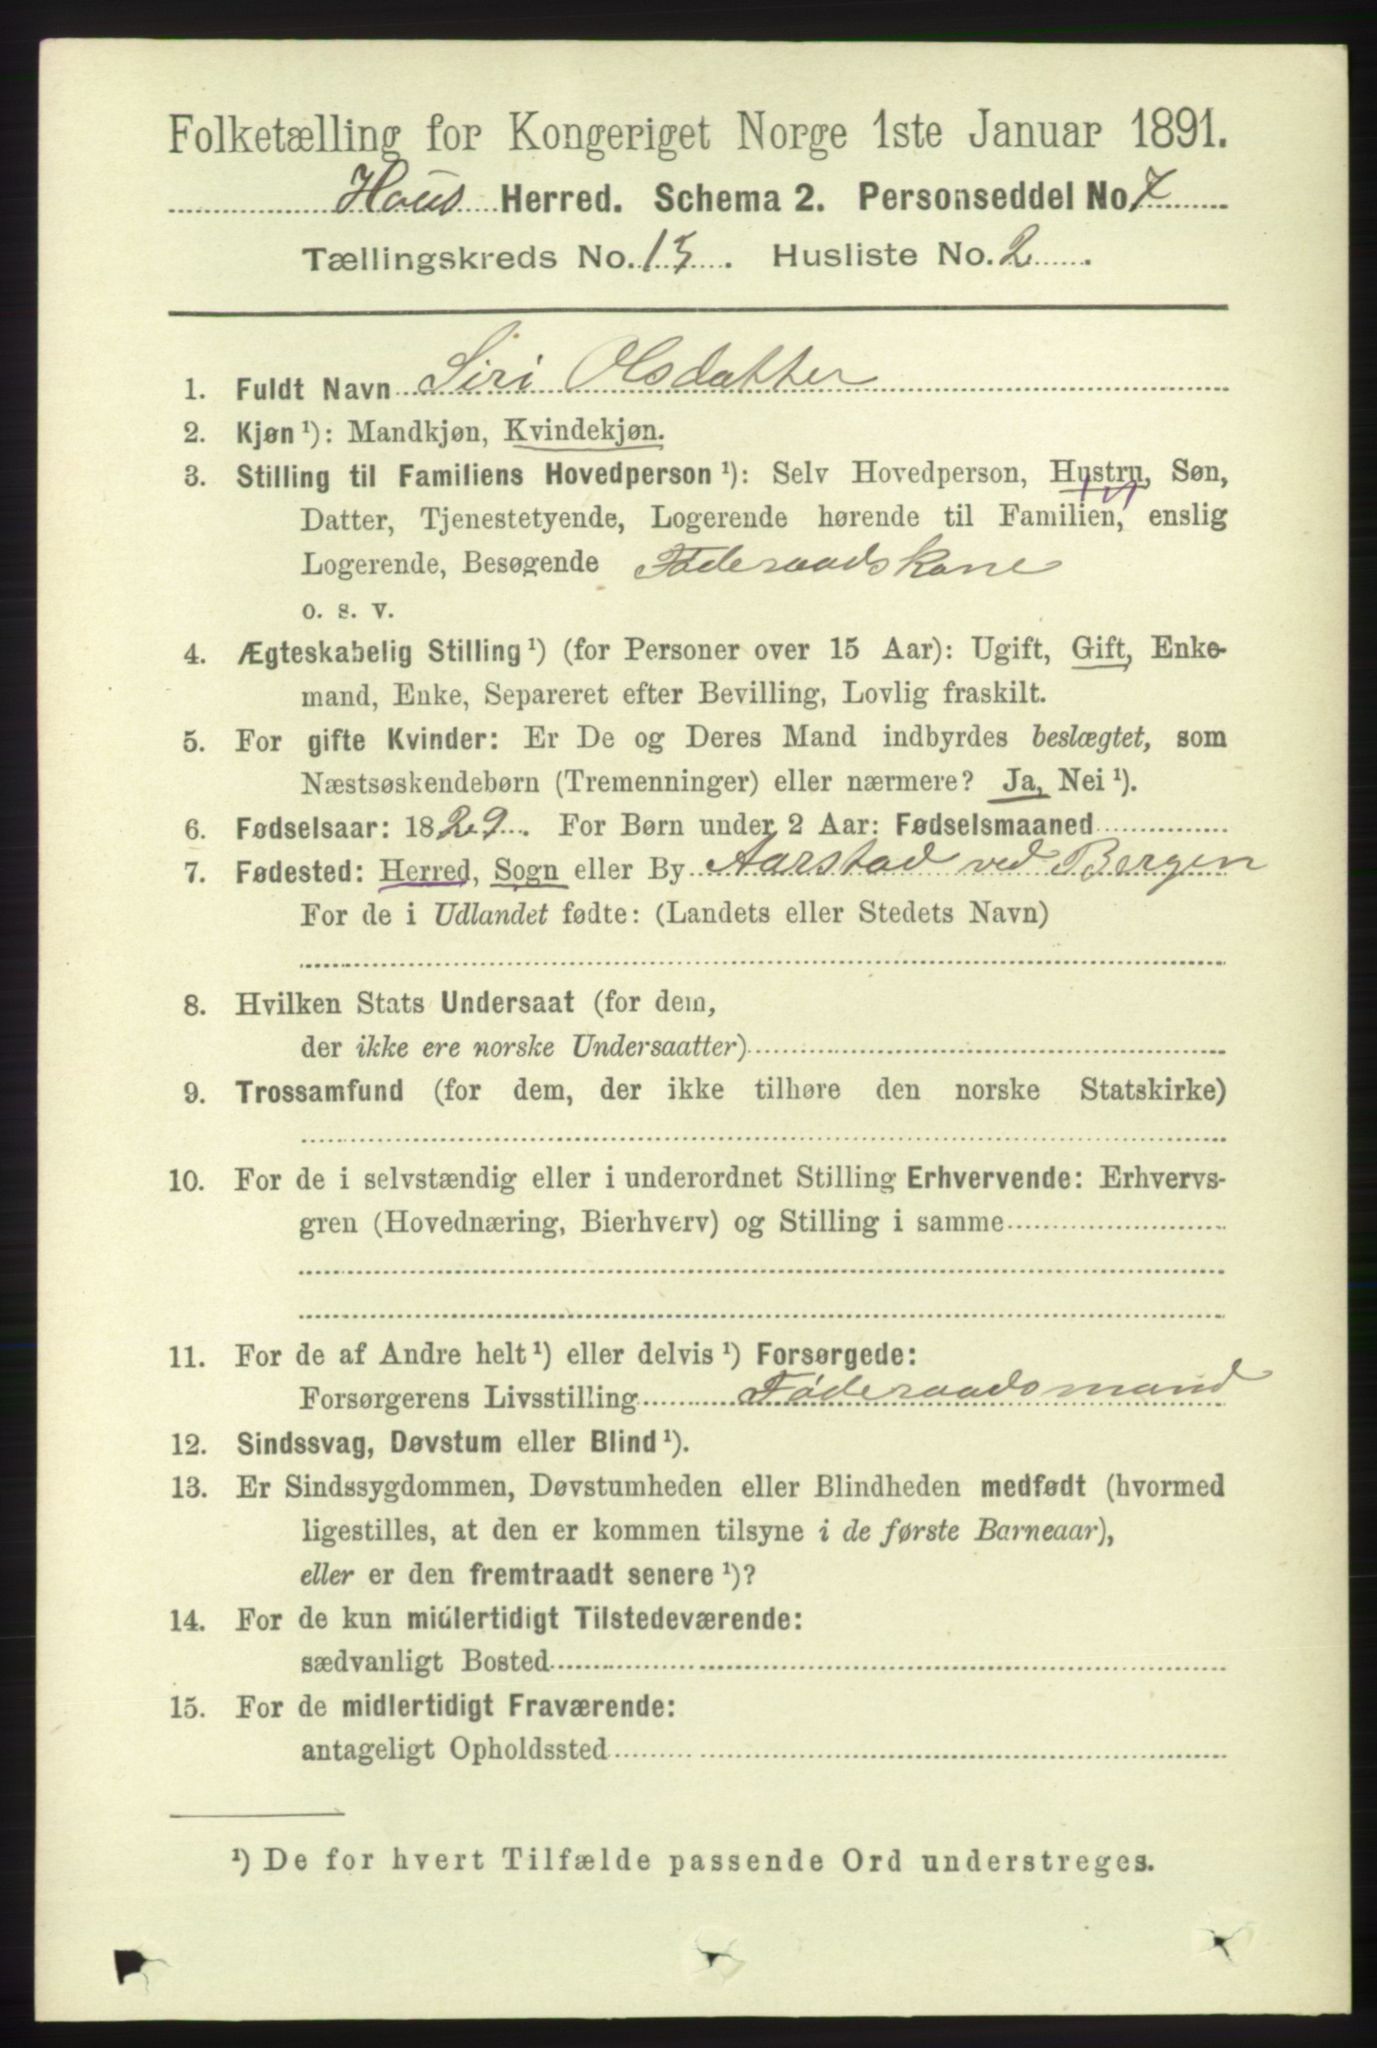 Folketælling for Kongeriget Norge 1ste Januar 1891.
Haus Herred. Schema 2. Personseddel No. 7
Tællingskreds No. 15. Husliste No. 2
1. Fuldt Navn Siri Olsdatter
2. Kjøn ¹): Mandkjøn, Kvindekjøn.
3. Stilling til Familiens Hovedperson ¹): Selv Hovedperson, Hustru, Søn,
Datter, Tjenestetyende, Logerende hørende til Familien, enslig
Logerende, Besøgende Føderaadskone
o. s. v.
4. Ægteskabelig Stilling ¹) (for Personer over 15 Aar): Ugift, Gift, Enke-
mand, Enke, Separeret efter Bevilling, Lovlig fraskilt.
5. For gifte Kvinder: Er De og Deres Mand indbyrdes beslægtet, som
Næstsøskendebørn (Tremenninger) eller nærmere? Ja, Nei ¹).
6. Fødselsaar: 1829. For Børn under 2 Aar: Fødselsmaaned
7. Fødested: Herred, Sogn eller By Aarstad ved Bergen
For de i Udlandet fødte: (Landets eller Stedets Navn)
8. Hvilken Stats Undersaat (for dem,
der ikke ere norske Undersaatter)
9. Trossamfund (for dem, der ikke tilhøre den norske Statskirke)
10. For de i selvstændig eller i underordnet Stilling Erhvervende: Erhvervs-
gren (Hovednæring, Bierhverv) og Stilling i samme
11. For de af Andre helt ¹) eller delvis ¹) Forsørgede:
Forsørgerens Livsstilling Føderaadsmand
12. Sindssvag, Døvstum eller Blind ¹).
13. Er Sindssygdommen, Døvstumheden eller Blindheden medfødt (hvormed
ligestilles, at den er kommen tilsyne i de første Barneaar),
eller er den fremtraadt senere ¹)?
14. For de kun midlertidigt Tilstedeværende:
sædvanligt Bosted
15. For de midlertidigt Fraværende:
antageligt Opholdssted
¹) De for hvert Tilfælde passende Ord understreges.